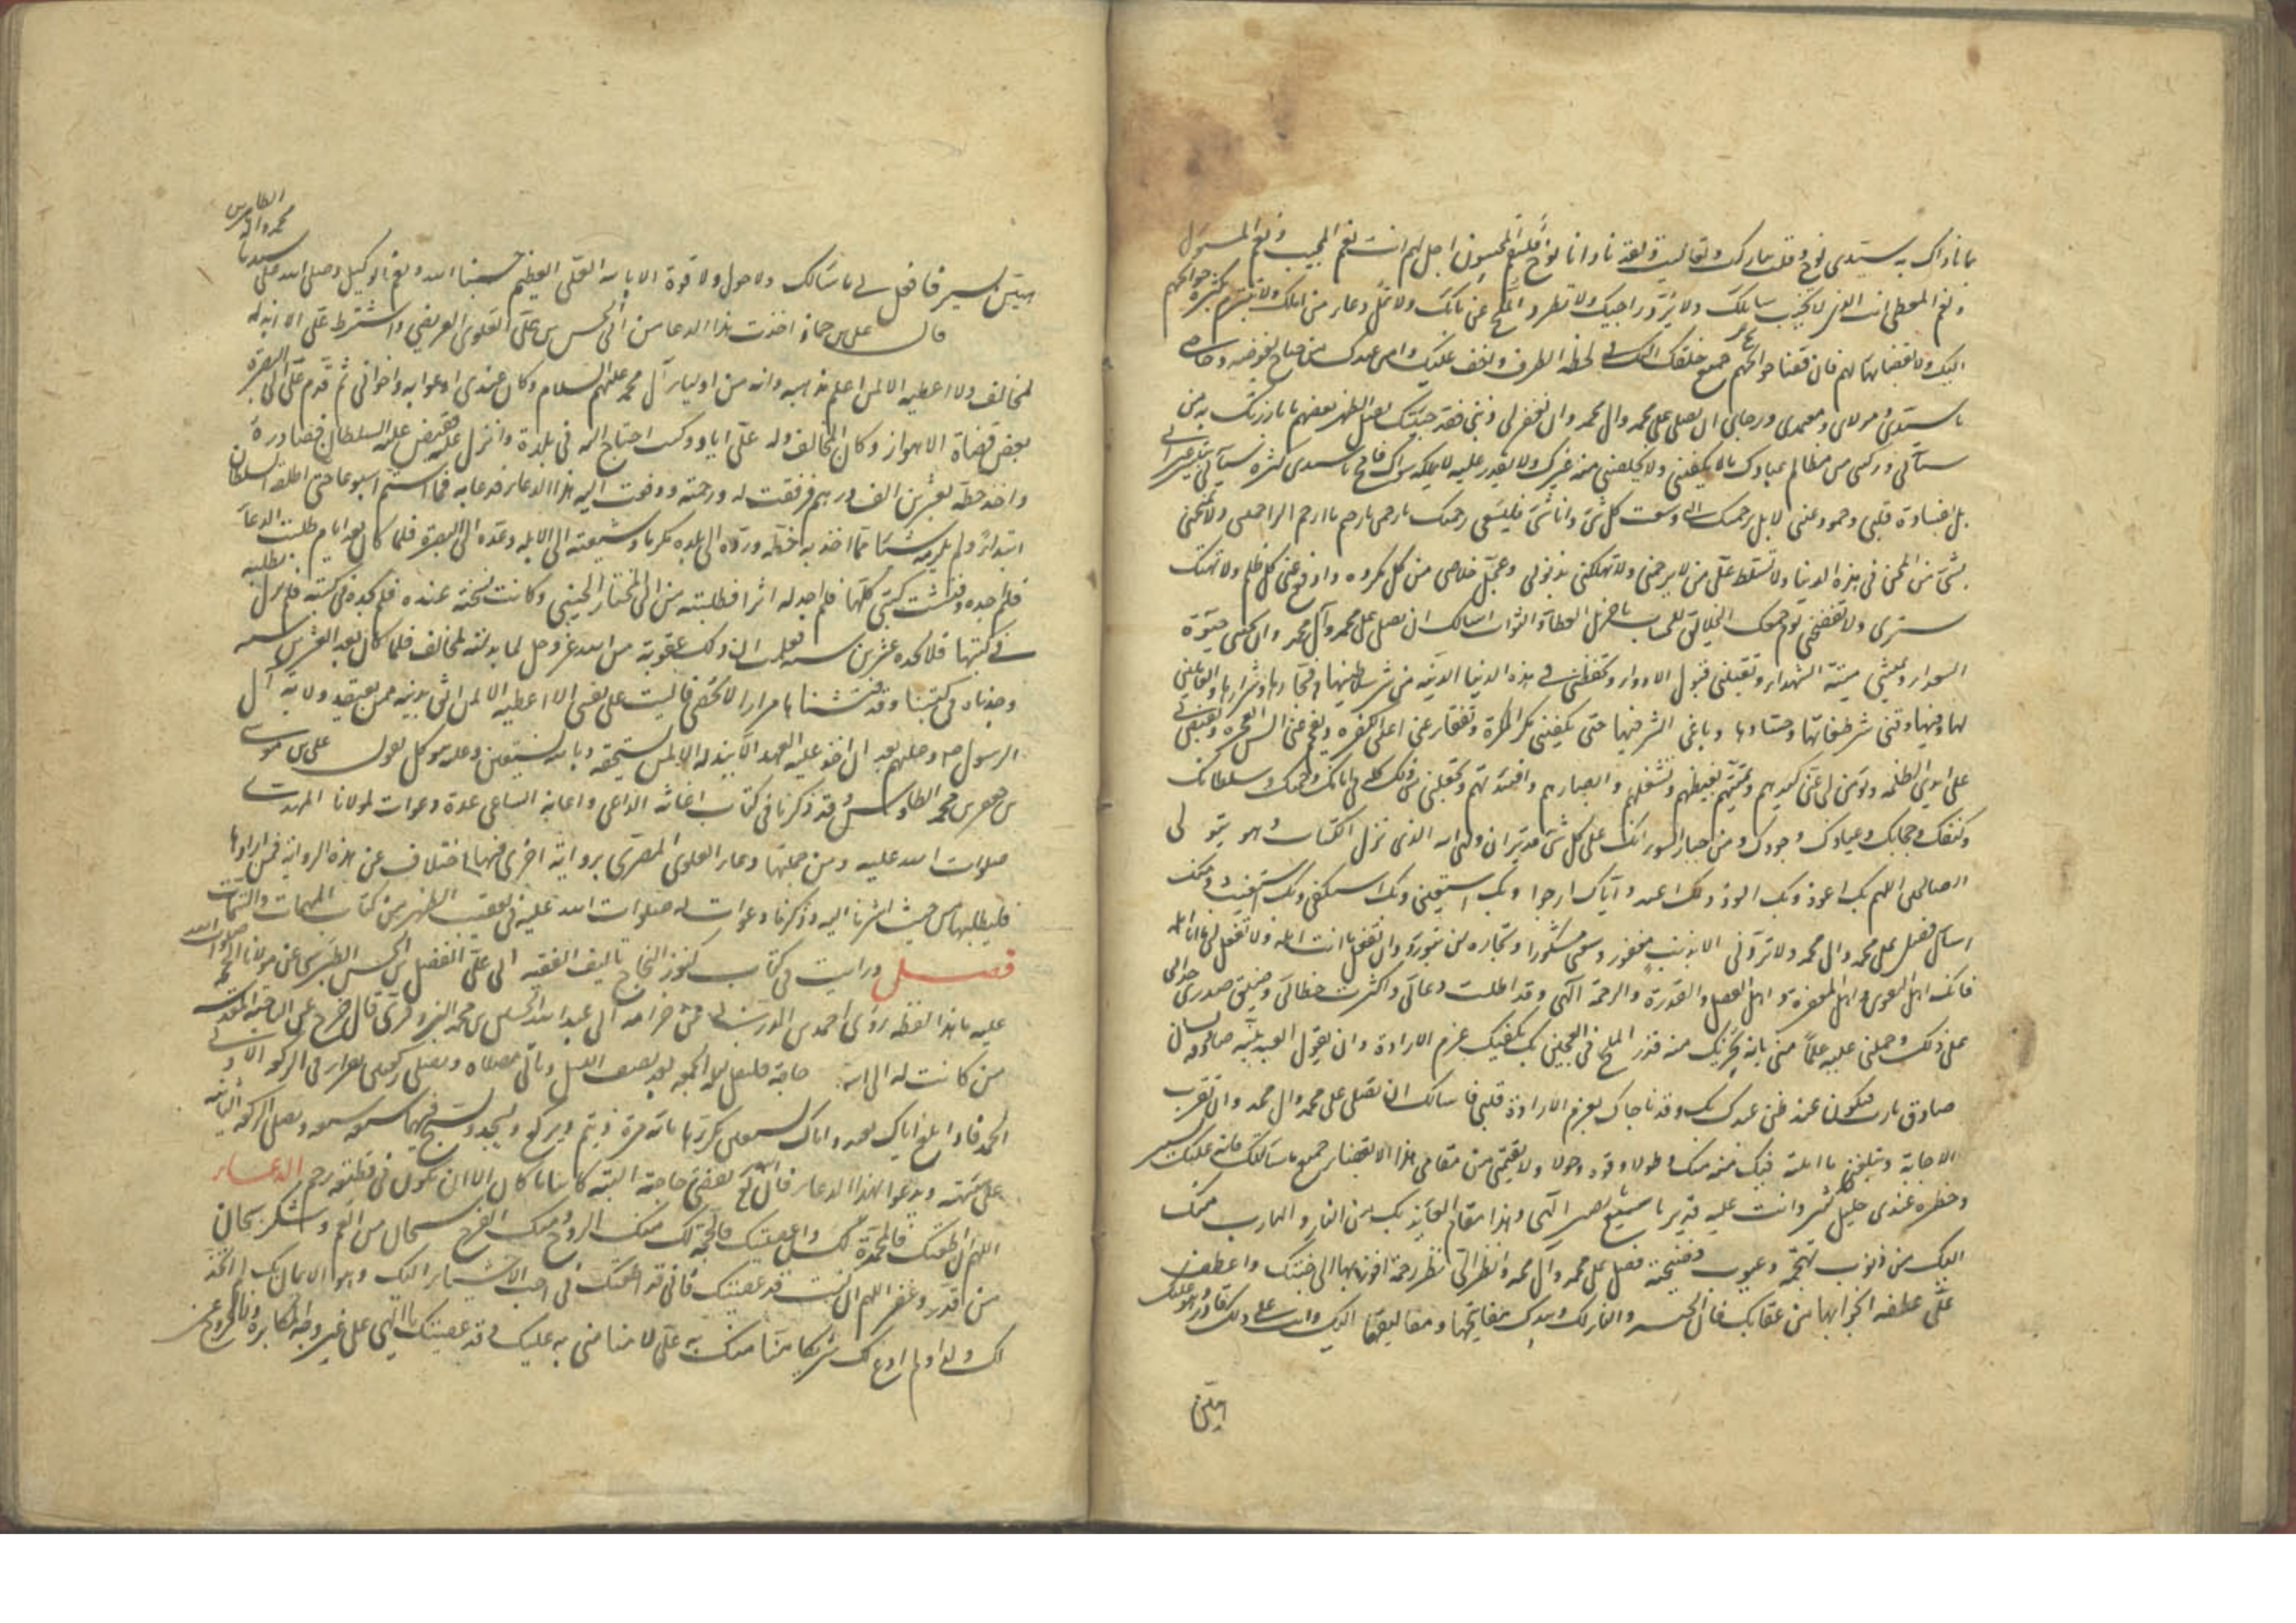 بما ناداك به سيدي نوح وقلت تباركت وتعاليت ولقد نادانا نوح فلنعم المجيبون اجل اللهم انت نعم المجيب ونعم المسئول
ونعم المعطى انت الذي لا تخيب سائلك ولا ترد راجيك ولا تطرد الملح عن بابك ولا تمل دعاء من املك ولا تتبرم بكثرة حوائجهم
اليك ولا بقضائها لهم فان قضاء حوائج جميع خلقك اليك في لحظ الطرف واخف عليك واهون عندك من جناح بعوضة وحاجتي
يا سيدي ومولاي ومعتمدي ورجائي ان تصلي على محمد وال محمد وان تغفر لي ذنبي فقد جئتك ثقيل الظهر بعظيم ما بارزتك به من
سيآتي وركبني من مظالم عبادك ما لا يكفيني ولا يخلصني منه غيرك ولا يقدر عليه ولا يملكه سواك فامح يا سيدي كثرة سيآتي بيسير عبراتي
بل بقساوة قلبي وجمود عيني لا بل برحمتك التي وسعت كل شئ وانا شئ فلتسعني رحمتك يا رحمن يا رحيم يا ارحم الراحمين ولا تمتحني
بشئ من المحن في هذه الدنيا ولا تسلط علي من لا يرحمني ولا تهلكني بذنوبي وعجل خلاصي من كل مكروه وادفع عني كل ظلم ولا تهتك
ستري ولا تفضحني يوم جمعك الخلائق للحساب يا جزيل العطاء والثواب اسالك ان تصلي على محمد وآل محمد وان تحييني حيوة
السعداء وتميتني ميتة الشهداء وتقبلني قبول الاوداء وتحفظني في هذه الدنيا الدنية من شر سلاطينها وفجارها وشرارها والعاملين
لها وفيها وقني شر طغاتها وحسادها وباغي الشر فيها حتى تكفيني مكر المكرة وتفقأ عني اعين الكفرة وتفحم عني السن الفجرة وتقبض لي
على ايدي الظلمة وتومن لي عني كيدهم وتميتهم بغيظهم وتشغلهم وابصارهم وافئدتهم وتجعلني من ذلك كله في امانك وحرزك وسلطانك
وكنفك وحجابك وعياذك وجودك ومن جار السوء انك على كل شئ قدير ان وليي الله الذي نزل الكتاب وهو يتولى
الصالحين اللهم بك اعوذ وبك الوذ ولك اعبد واياك ارجو وبك استعين وبك استكفي وبك استغيث ومنك
اسال فصل على محمد وال محمد ولا تردني الا بذنب مغفور وسعي مشكور وتجارة لن تبور وان تفعل بي ما انت اهله ولا تفعل بي ما انا اهله
فانك اهل التقوى واهل المغفرة واهل الفضل والقدرة والرحمة الهي وقد اطلت دعائي واكثرت خطابي وضيق صدري حداني
على ذلك وحملني عليه علما مني بانه يجزيك منه قدر الملح في العجين بل يكفيك عزم الارادة وان يقول العبد بنية صادقة ولسان
صادق يا رب فتكون عند ظن عبدك بك وقد ناجاك بعزم الارادة قلبي فاسالك ان تصلي على محمد وال محمد وان تقرب
الاجابة وتبلغني ما املته فيك منة منك وطولا وقوة وحولا ولا تقيمني من مقامي هذا الا بقضاء جميع ما سالتك فانه عليك يسير
وخطره عندي جليل كثير وانت عليه قدير يا سميع يا بصير الهي وهذا مقام العائذ بك من النار والهارب منك
اليك من ذنوب تهجمته وعيوب فضحته فصل على محمد وال محمد وانظر الي نظر رحمة افوز بها الى جنتك واعطف
علي عطفة انجو بها من عقابك فان الجنة والنار لك وبيدك مفاتيحهما ومغاليقهما اليك وانت على ذلك قادر وهو عليك
هين
هين يسير فافعل بي ما سالتك ولا حول ولا قوة الا بالله العلي العظيم حسبنا الله ونعم الوكيل وصلى الله على سيدنا
محمد واله الطاهرين
قال علي بن حماد اخذت هذا الدعا من ابي الحسن علي العلوي العريضي واشترط علي الا ابذله
لمخالف ولا اعطيه الا لمن اعلم مذهبه وانه من اولياء آل محمد عليهم السلام وكان عندي ادعو به واخواني ثم قدم علي الى البصرة
بعض قضاة الاهواز وكان مخالفا وله علي اياد وكنت احتاج اليه في بلده وانزل عليه فقبض عليه السلطان فصادره
واخذ خطه بعشرين الف درهم فرققت له ورحمته ودفعت اليه هذا الدعاء فدعا به فما استتم اسبوعا حتى اطلقه السلطان
ابتداء ولم يلزمه شيئا مما اخذ به خطه ورده الى بلده مكرما وشيعته الى الابلة وعدت الى البصرة فلما كان بعد ايام طلبت الدعاء
فلم اجده وفتشت كتبي كلها فلم اجد له اثرا فطلبته من ابي المختار الحسيني وكانت نسخته عنده فلم يجده في كتبه فلم نزل نطلبه
في كتبنا فلا نجده عشرين سنة فعلمت ان ذلك عقوبة من الله عز وجل لما بذلته لمخالف فلما كان بعد العشرين سنة
وجدناه في كتبنا وقد فتشناها مرارا لا تحصى فآليت على نفسي الا اعطيه الا لمن اثق بدينه ممن يعتقد ولاية آل
الرسول صلى وعليهم بعد ان اخذ عليه العهد الا يبذله الا لمن يستحقه وبالله نستعين وعليه نتوكل يقول علي بن موسى
بن جعفر بن محمد الطاوس قد ذكرنا في كتاب اغاثة الداعي واعانة الساعي عدة دعوات لمولانا المهدي
صلوات الله عليه ومن جملتها دعاء العلوي المصري برواية اخرى فيها اختلاف عن هذه الرواية فمن ارادها
فليطلبها من حيث اشرنا اليه وذكرنا دعوات له صلوات الله عليه في تعقيب الظهر من كتاب المهمات والتتمات
فصل ورايت في كتاب كنوز النجاح تاليف الفقيه ابي علي الفضل بن الحسن الطبرسي عن مولانا الحجة صلوات الله
عليه ما هذا لفظه روى احمد بن الدربي عن خزامة ابي عبد الله الحسين بن محمد البزوفري قال خرج عن الناحية المقدسة
من كانت له الى الله حاجة فليغتسل ليلة الجمعة بعد نصف الليل وياتي مصلاه ويصلي ركعتين يقرا في الركعة الاولى
الحمد فاذا بلغ اياك نعبد واياك نستعين يكررها مائة مرة ويتم ويركع ويسجد ويسبح فيها سبعة سبعة ويصلي الركعة الثانية
على هيئته ويدعوا بهذا الدعاء فان الله تع يقضي حاجته البتة كائنا ما كان الا ان تكون في قطيعة رحم الدعاء
اللهم ان اطعتك فالمحمدة لك وان عصيتك فالحجة لك منك الروح ومنك الفرج سبحان من انعم وشكر سبحان
من قدر وغفر اللهم ان كنت قد عصيتك فاني قد اطعتك في احب الاشياء اليك وهو الايمان بك لم اتخذ
لك ولدا ولم ادع لك شريكا منا منك به علي لا منا مني به عليك وقد عصيتك يا الهي على غير وجه المكابرة ولا الخروج عن